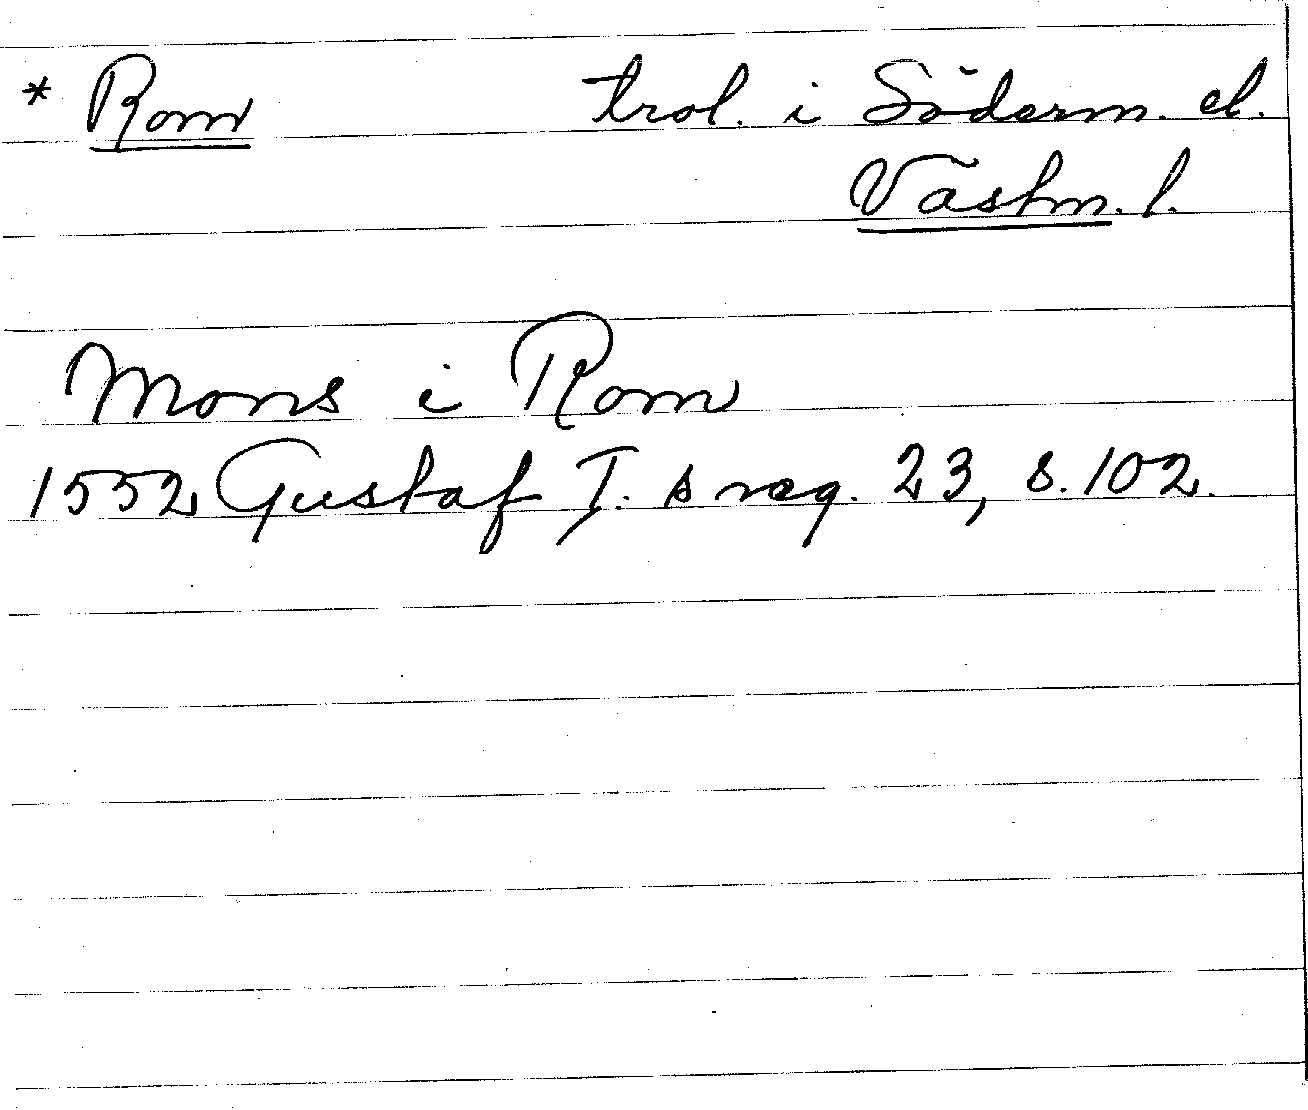 * Rom trol. i Söderm. el.
Västm. l.
Mons i Rom
1552 Gustaf I:s reg. 23, s. 102.